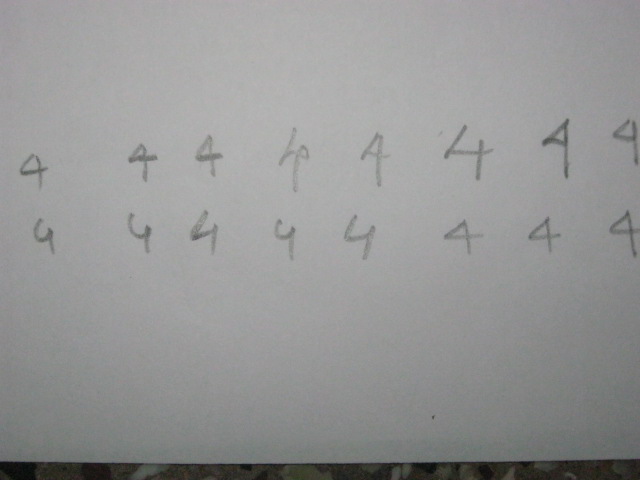 4 4 4 4 4 4 4 4
4 4 4 4 4 4 4 4